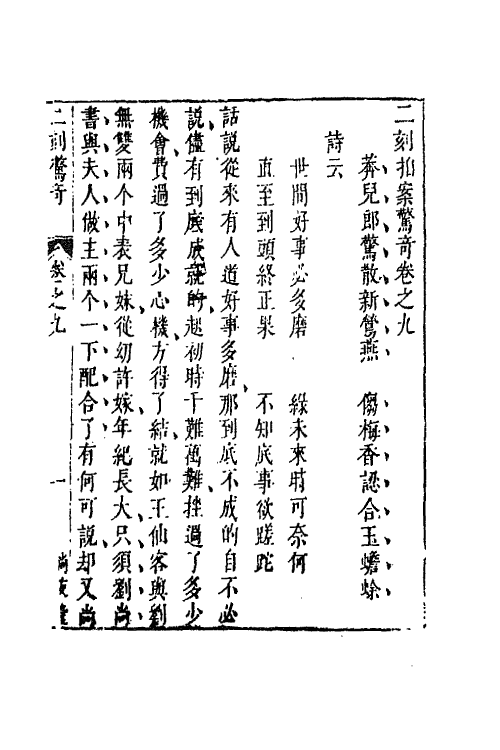 二刻拍案驚奇卷之九
莽兒郎驚散新鶯燕　傷梅香認合玉蟾蜍
詩云
世間好事必多磨　緣未來時可奈何
直至到頭終正果　不知底事欲蹉跎
話說從來有人道好事多磨那到底不成的自不必
說儘有到底成就的起初時千難萬難挫過了多少
機會費過了多少心機方得了結就如王仙客與劉
無雙兩个中表兄妹從幼許嫁年紀長大只須劉尚
書與夫人做主兩个一下配合了有何可說却又尚
二刻驚奇　卷之九　一　尚友堂